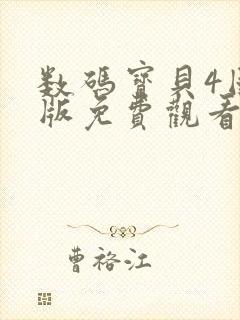 数碼寶貝4
版免費觀看
曹裕江